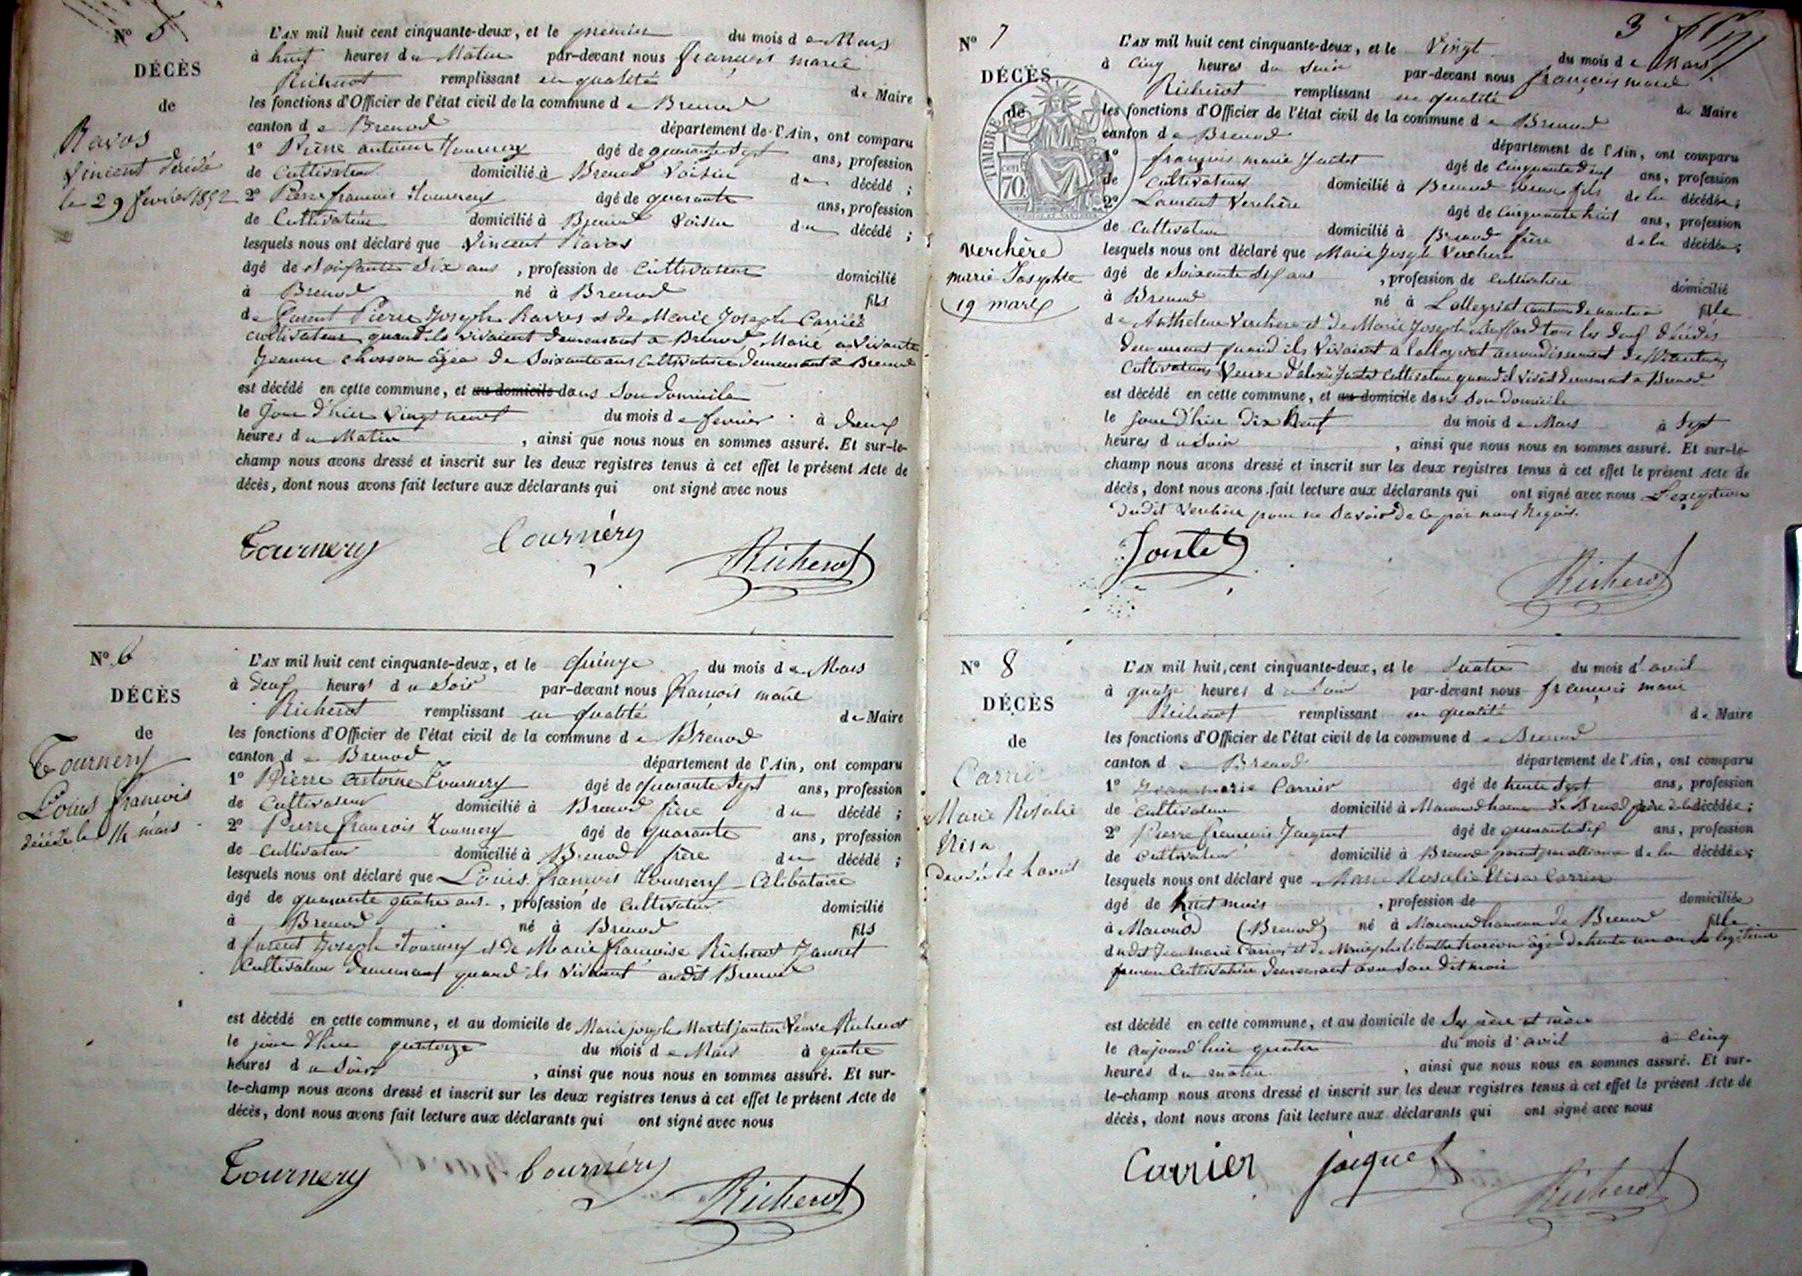 N° 5
DÉCÈS
de
Ravos
Vincent décédé
le 29 février 1852
L'AN mil huit cent cinquante-deux, et le premier du mois de Mars
à huit heures du Matin par-devant nous françois marie
Richerot remplissant en qualité de Maire
les fonctions d'Officier de l'état civil de la commune de Brenod
canton de Brenod département de l'Ain, ont comparu
1° Pierre antoine Tournery âgé de quarante Sept ans, profession
de Cultivateur domicilié à Brenod Voisin du décédé ;
2° Pierre francois Tournery âgé de quarante ans, profession
de Cultivateur domicilié à Brenod Voisin du décédé ;
lesquels nous ont déclaré que Vincent Ravos
âgé de Soixante Six ans , profession de Cultivateur domicilié
à Brenod né à Brenod fils
de Pierre Joseph Ravos et de Marie Joseph Carrier
cultivateurs quand ils vivaient demeurant à Brenod, Marié
Jeanne chosson âgée de Soixante ans Cultivatrice demeurant à Brenod
est décédé en cette commune, et au domicile dans Son domicile
le Jour d'hier Vingt neuf du mois de fevrier à deux
heures du Matin , ainsi que nous nous en sommes assuré. Et sur-le-
champ nous avons dressé et inscrit sur les deux registres tenus à cet effet le présent Acte de
décès, dont nous avons fait lecture aux déclarants qui ont signé avec nous
Tournery Tournéry Richerot
N° 6
DÉCÈS
de
Tournery
Louis francois
décédé le 14 mars
L'AN mil huit cent cinquante-deux, et le quinze du mois de Mars
à deux heures du Soir par-devant nous françois marie
Richerot remplissant en qualité de Maire
les fonctions d'Officier de l'état civil de la commune de Brenod
canton de Brenod département de l'Ain, ont comparu
1° Pierre Antoine Tournery âgé de quarante Sept ans, profession
de Cultivateur domicilié à Brenod frère du décédé ;
2° Pierre françois Tournery âgé de quarante ans, profession
de Cultivateur domicilié à Brenod frère du décédé ;
lesquels nous ont déclaré que Louis françois Tournery Célibataire
âgé de quarante quatre ans , profession de Cultivateur domicilié
à Brenod né à Brenod fils
Joseph Tournery et de Marie françoise Richerot
Cultivateurs demeurant quand ils Vivaient audit Brenod
est décédé en cette commune, et au domicile de Marie joseph Veuve Richerot
le jour d'hier quatorze du mois de Mars à quatre
heures du Soir , ainsi que nous nous en sommes assuré. Et sur-
le-champ nous avons dressé et inscrit sur les deux registres tenus à cet effet le présent Acte de
décès, dont nous avons fait lecture aux déclarants qui ont signé avec nous
Tournery Tournéry Richerot
3
N° 7
DÉCÈS
de
TIMBRE
70
Verchère
marie Josephte
19 mars
L'AN mil huit cent cinquante-deux, et le Vingt du mois de Mars
à Cinq heures du Soir par-devant nous françois marie
Richerot remplissant en qualité de Maire
les fonctions d'Officier de l'état civil de la commune de Brenod
canton de Brenod département de l'Ain, ont comparu
1° françois marie Joutet âgé de Cinquante deux ans, profession
de Cultivateur domicilié à Brenod de la décédée ;
2° Laurent Verchère âgé de Cinquante huit ans, profession
de Cultivateur domicilié à Brenod frère de la décédée ;
lesquels nous ont déclaré que Marie Joseph Verchere
âgé de Soixante ans , profession de Cultivatrice domicilié
à Brenod né à Lalleyriat canton de nantua fille
de Anthelme Verchere et de Marie Joseph tous les deux décédés
demeurant quand ils Vivaient à Lalleyriat arrondissement de Nantua
Cultivateurs Veuve Joutet Cultivateur quand il vivait demeurant à Brenod
est décédé en cette commune, et au domicile dans Son domicile
le Jour d'hier Dix Neuf du mois de Mars à Sept
heures du Soir , ainsi que nous nous en sommes assuré. Et sur-le-
champ nous avons dressé et inscrit sur les deux registres tenus à cet effet le présent Acte de
décès, dont nous avons fait lecture aux déclarants qui ont signé avec nous L'exception
dudit Verchère pour ne Savoir de ce par nous Requis.
Joutet Richerot
N° 8
DÉCÈS
de
Carrier
Marie Rosalie
Elisa
décédée le 4 avril
L'AN mil huit cent cinquante-deux, et le quatre du mois d'avril
à quatre heures du Soir par-devant nous françois marie
Richerot remplissant en qualité de Maire
les fonctions d'Officier de l'état civil de la commune de Brenod
canton de Brenod département de l'Ain, ont comparu
1° Jean marie Carrier âgé de trente Sept ans, profession
de Cultivateur domicilié à hameau de Brenod père de la décédée ;
2° Pierre françois Jacquet âgé de quarante Six ans, profession
de Cultivateur domicilié à Brenod parent par alliance de la décédée ;
lesquels nous ont déclaré que Marie Rosalie Elisa Carrier
âgé de huit mois , profession de domiciliée
à (Brenod) né à hameau de Brenod fille
dudit Jean marie Carrier et de Marie âgée de trente un ans Sa légitime
femme Cultivatrice demeurant avec Son dit mari
est décédé en cette commune, et au domicile de Ses père et mère
le aujourd'hui quatre du mois d'avril à Cinq
heures du matin , ainsi que nous nous en sommes assuré. Et sur-
le-champ nous avons dressé et inscrit sur les deux registres tenus à cet effet le présent Acte de
décès, dont nous avons fait lecture aux déclarants qui ont signé avec nous
Carrier jacquet Richerot